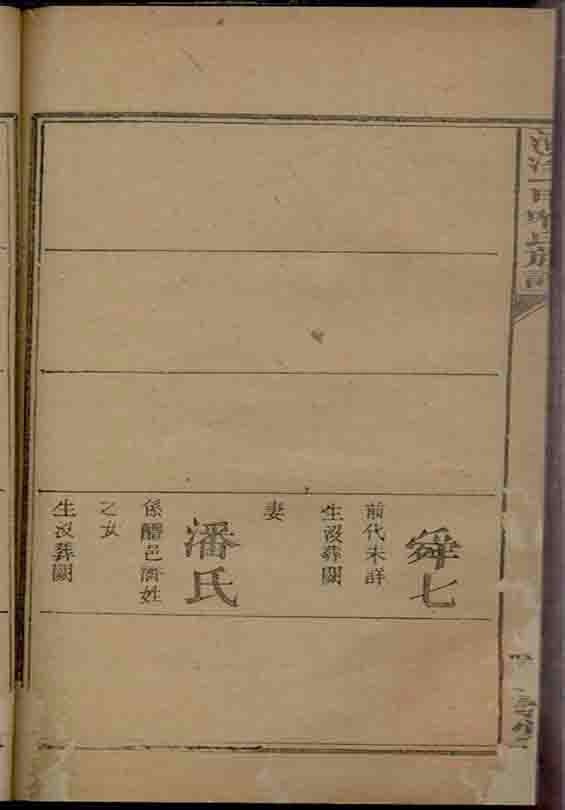 舜七
前代未詳
生沒葬闕
妻
潘氏
係醴邑潘姓
之女
生沒葬闕